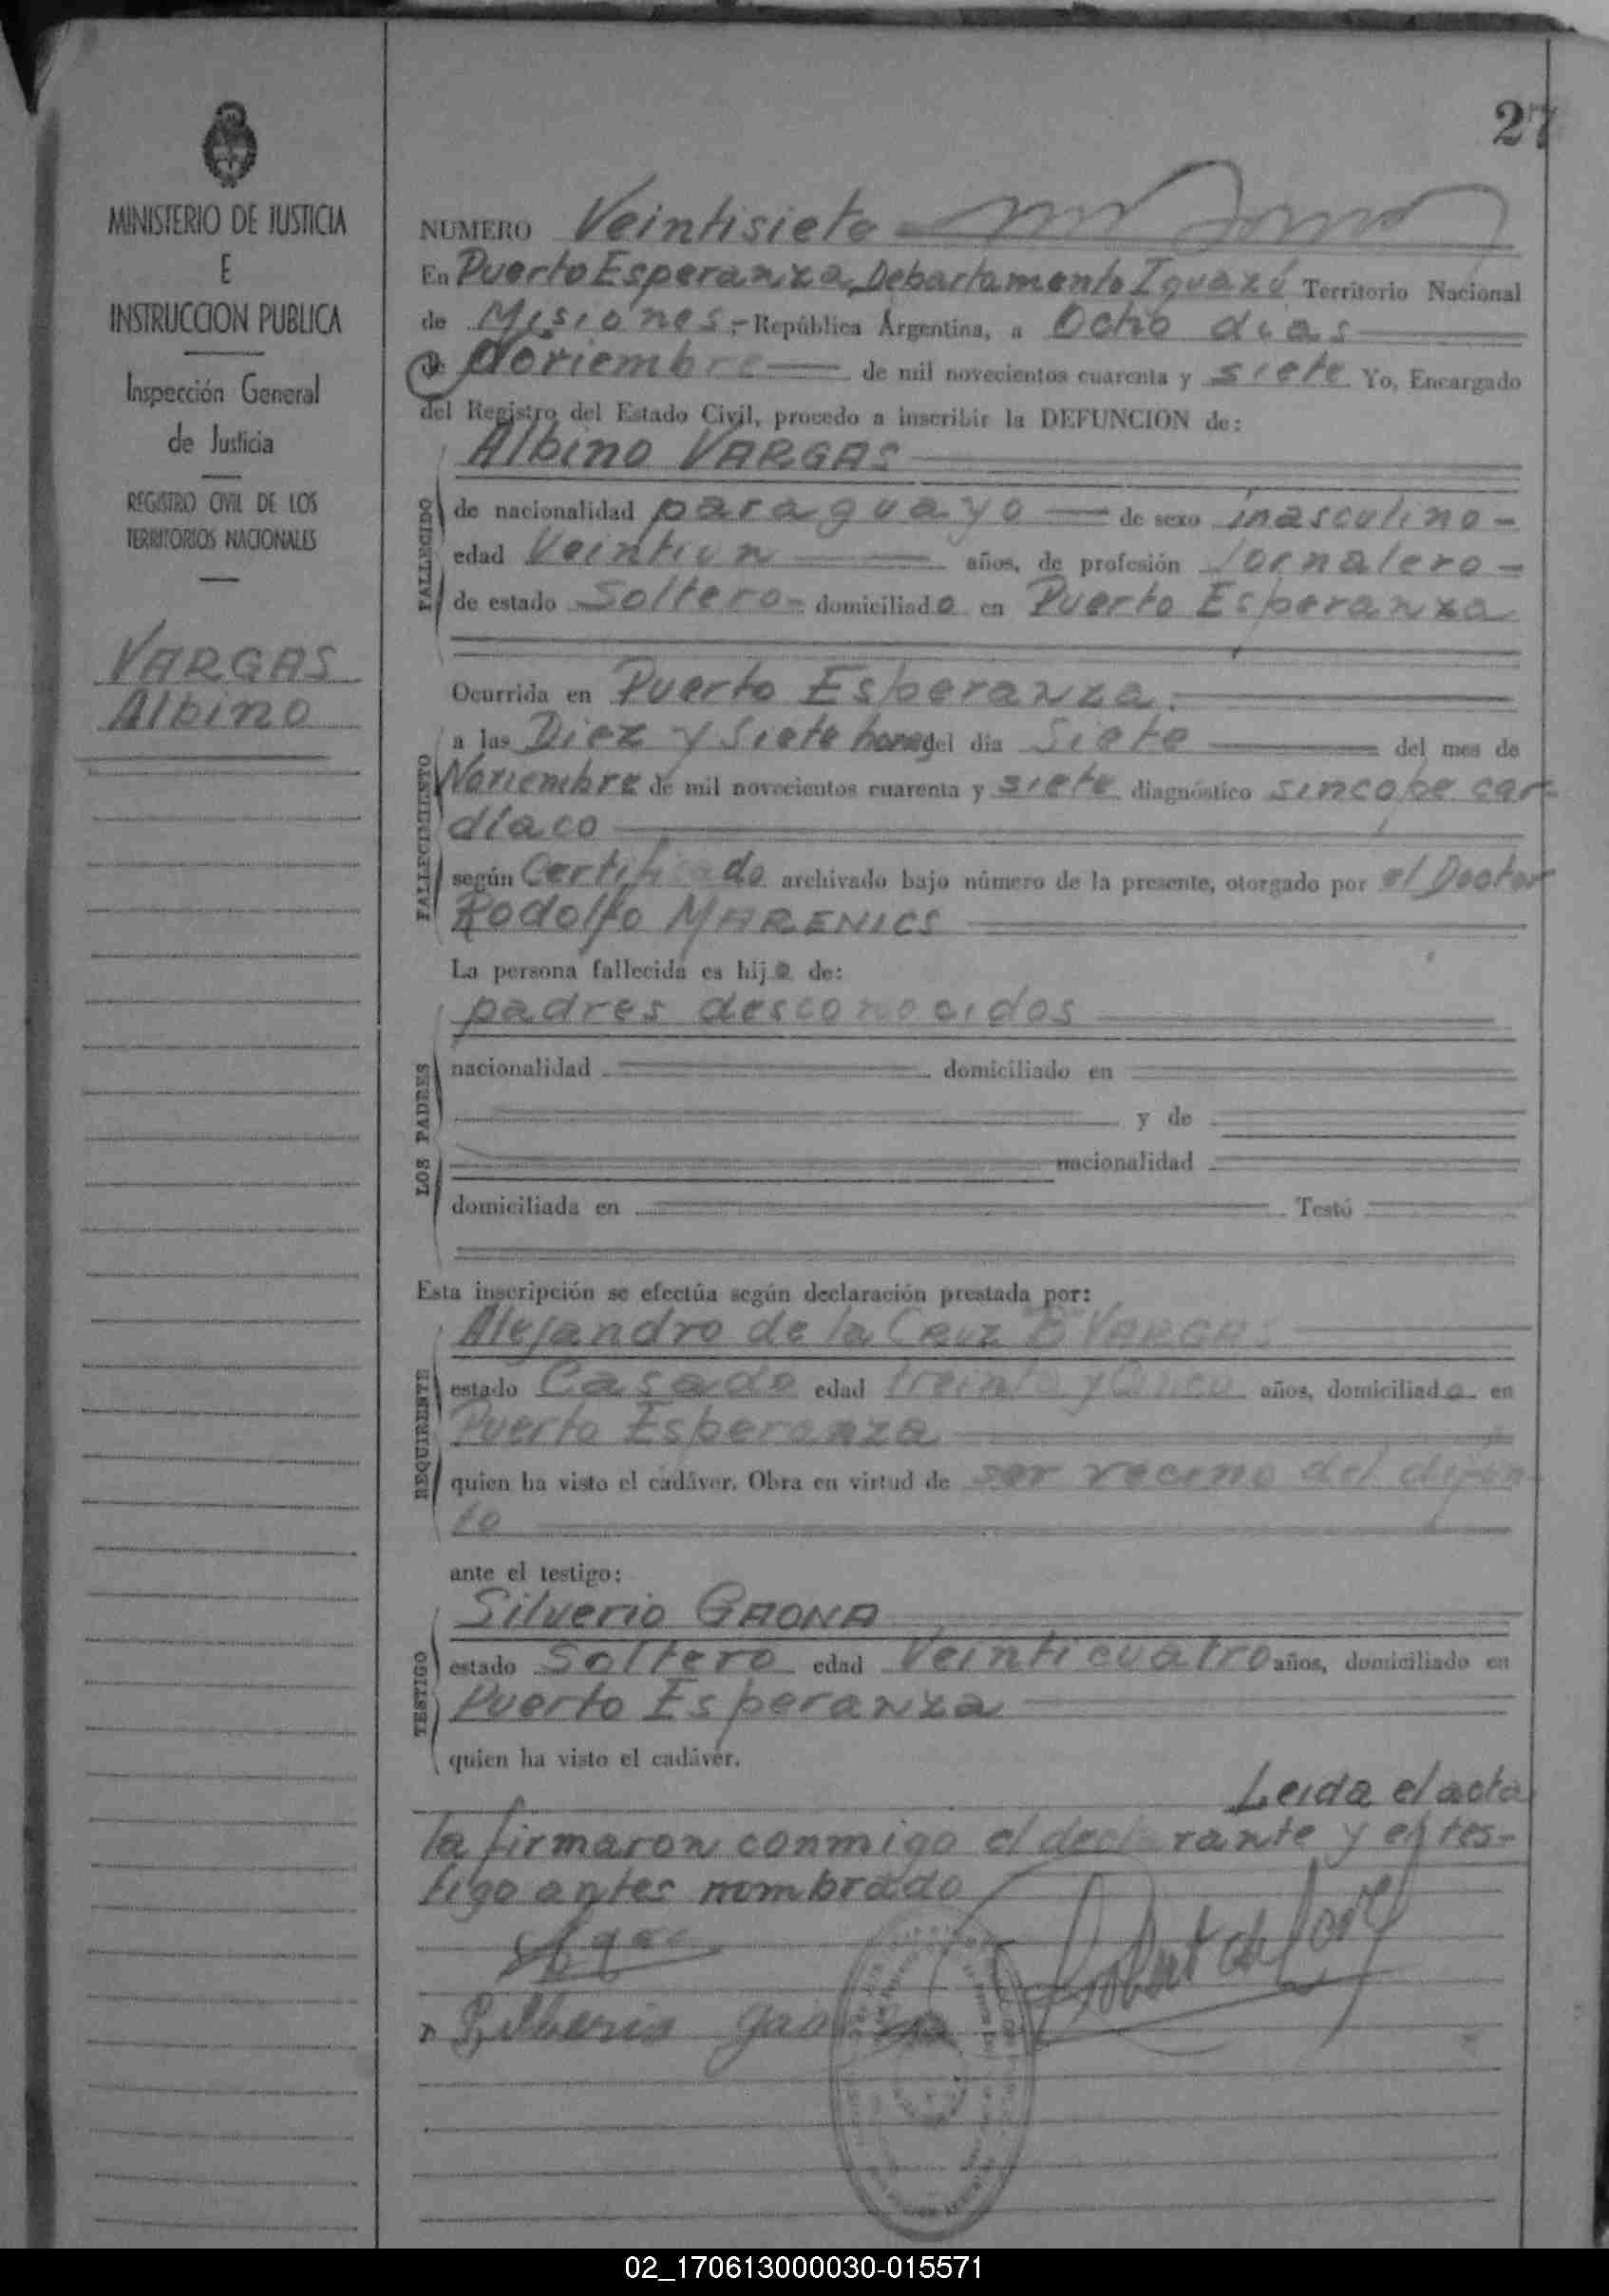 27
MINISTERIO DE JUSTICIA
E
INSTRUCCION PUBLICA
Inspección General
de Justicia
REGISTRO CIVIL DE LOS
TERRITORIOS NACIONALES
VARGAS
Albino
NUMERO Veintisiete
En Puerto Esperanza, Departamento Iguazú Territorio Nacional
de Misiones,- República Argentina, a Ocho dias
de Noviembre de mil novecientos cuarenta y siete Yo, Encargado
del Registro del Estado Civil, procedo a inscribir la DEFUNCION de:
Albino VARGAS
FALLECIDO
de nacionalidad paraguayo de sexo masculino-
edad Veintiun años, de profesión Jornalero-
de estado Soltero- domiciliado en Puerto Esperanza
Ocurrida en Puerto Esperanza.
FALLECIMIENTO
a las Diez y Siete horas del día Siete del mes de
Noviembre de mil novecientos cuarenta y siete diagnóstico sincope car-
diaco
según Certificado archivado bajo número de la presente, otorgado por el Doctor
Rodolfo MARENICS
La persona fallecida es hijo de:
LOS PADRES
padres desconocidos
nacionalidad domiciliado en
y de
nacionalidad
domiciliada en Testó
Esta inscripción se efectúa según declaración prestada por:
REQUIRENTE
Alejandro de la Cruz VARGAS
estado Casado edad treinta y Cinco años, domiciliado en
Puerto Esperanza
quien ha visto el cadáver. Obra en virtud de ser vecino del difun-
to
ante el testigo:
TESTIGO
Silverio GAONA
estado Soltero edad Veinticuatro años, domiciliado en
Puerto Esperanza
quien ha visto el cadáver.
Leida el acta
la firmaron conmigo el declarante y el tes-
tigo antes nombrado
02_170613000030-015571